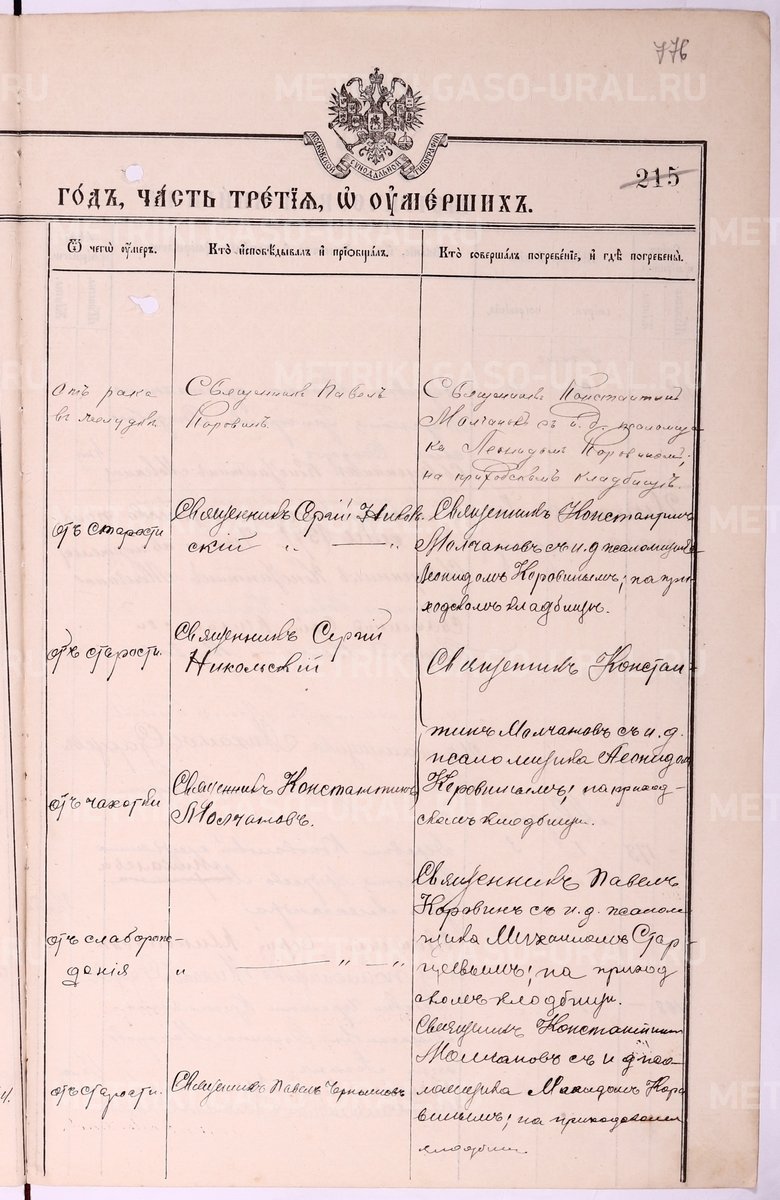 776
МОСКОВСКОЙ СѴНОДАЛЬНОЙ ТИПОГРАФІИ
215
ГО́ДЪ, ЧА́СТЬ ТРЕ́ТІѦ, Ѡ ОУ҆МЕ́РШИХЪ.
Ѿ чегѡ̀ ᲂу҆́меръ.
Кто̀ и҆сповѣ́дывалъ и҆ прїѡбща́лъ.
Кто̀ соверша́лъ погребе́нїе, и҆ гдѣ̀ погребены̀.
отъ рака
въ желудкѣ
Священникъ Павелъ
Коровинъ.
Священникъ Константинъ
Молчановъ съ и. д. псаломщи
ка Леонидомъ Коровинымъ;
на приходскомъ кладбищѣ.
отъ старости
Священникъ Сергій Николь
скій " — "
Священникъ Константинъ
Молчановъ съ и. д псаломщика
Леонидомъ Коровинымъ; на при
ходскомъ кладбищѣ.
отъ старости.
Священникъ Сергій
Никольскій
Священникъ Констан-
тинъ Молчановъ съ и. д.
псаломщика Леонидом
Коровинымъ; на приход-
скомъ кладбищѣ.
отъ чахотки
Священникъ Константинъ
Молчановъ.
отъ слаборож-
денія
" — " — "
Священникъ Павелъ
Коровинъ съ и. д. псалом
щика Михаиломъ Стар
цевымъ; на приход
скомъ кладбищѣ.
отъ старости.
Священникъ Павелъ
Священникъ Константинъ
Молчановъ съ и д пса
ломщика Леонидомъ Коро
винымъ; на приходскомъ
кладбищѣ
METRIKI.GASO-URAL.RU